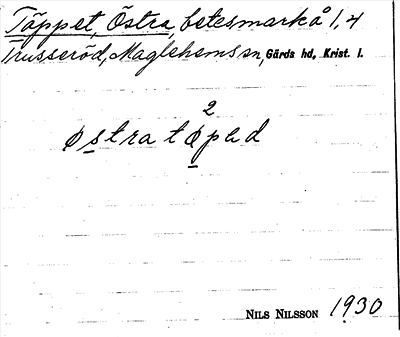 Täppet, Östra, betesmark å 1, 4
Trusseröd, Maglehems sn, Gärds hd, Krist. l.
2
østra tøpəd
NILS NILSSON 1930